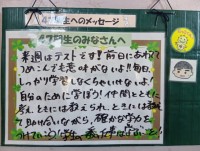 生へのメッセージ
47期生のみなさんへ
来週はテストです!前日にあわてて
つめこんでも意味がないよ!!毎日、
しっかり学習しなくちゃいけないよ!
自分のために学ぼう!仲間とともに
考え、ともには教えられ、ときには教え
て助け合いながら、確かな学力を
つけていこう!